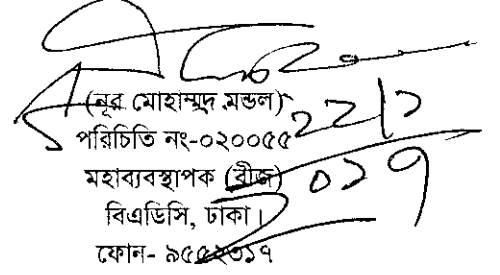 (নূর মোহাম্মদ মন্ডল)
পরিচিতি নং-০২০০৫৫
মহাব্যবস্থাপক (বীজ)
বিএডিসি, ঢাকা।
ফোন- ৯৫৫২৩১৭